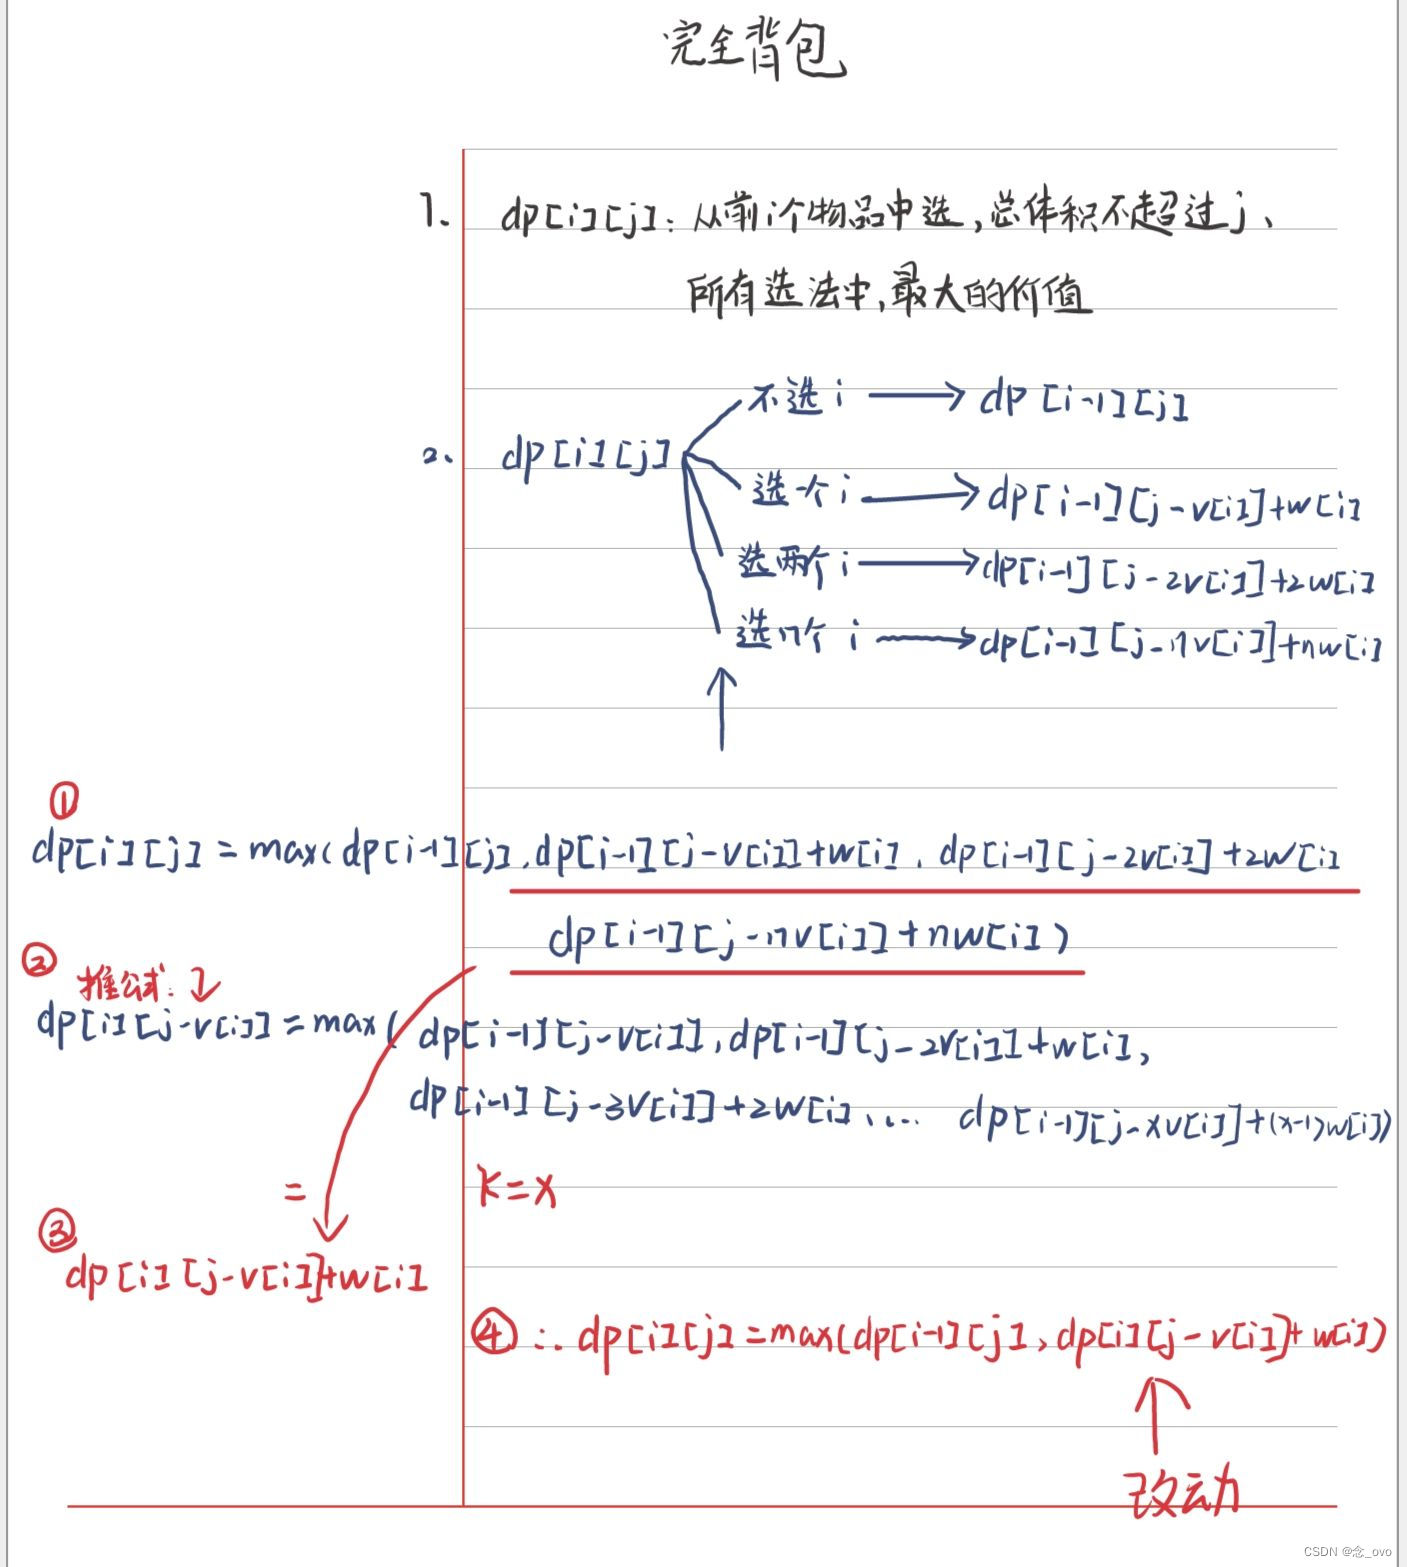 完全背包
1. dp[i][j]: 从前i个物品中选,总体积不超过j、
所有选法中,最大的价值
不选 i → dp[i-1][j]
2. dp[i][j]
选一个 i → dp[i-1][j-v[i]]+w[i]
选两个 i → dp[i-1][j-2v[i]]+2w[i]
选n个 i → dp[i-1][j-nv[i]]+nw[i]
①
dp[i][j] = max(dp[i-1][j], dp[i-1][j-v[i]]+w[i], dp[i-1][j-2v[i]]+2w[i]
dp[i-1][j-nv[i]]+nw[i])
② 推公式:
dp[i][j-v[i]] = max( dp[i-1][j-v[i]], dp[i-1][j-2v[i]]+w[i],
dp[i-1][j-3v[i]]+2w[i]、... dp[i-1][j-xv[i]]+(x-1)w[i])
= k=x
③
dp[i][j-v[i]]+w[i]
④ ∴ dp[i][j]=max(dp[i-1][j], dp[i][j-v[i]]+w[i])
改动
CSDN @念_ovo